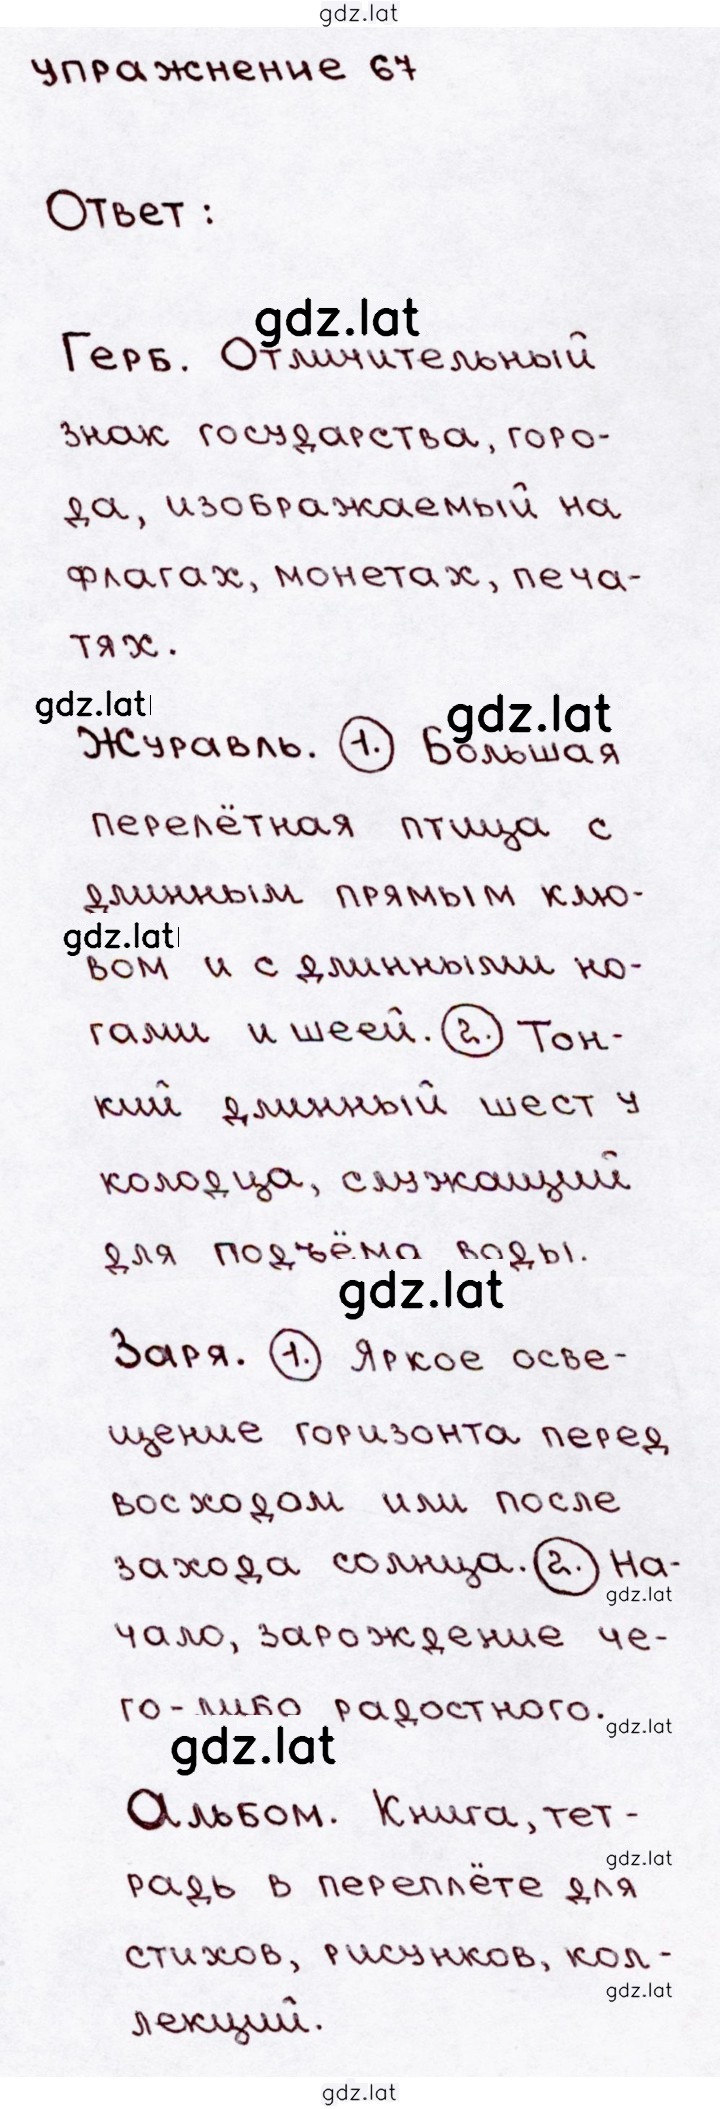 gdz.lat
упражнение 67
Ответ:
gdz.lat
Герб. Отличительный
знак государства, горо-
да, изображаемый на
флагах, монетах, печа-
тях.
gdz.lat
gdz.lat
Журавль. 1. Большая
перелётная птица с
длинным прямым клю-
gdz.lat
вом и с длинными но-
гами и шеей. 2. Тон-
кий длинный шест у
колодца, служащий
для подъёма воды.
gdz.lat
Заря. 1. Яркое осве-
щение горизонта перед
восходом или после
захода солнца. 2. На-
gdz.lat
чало, зарождение че-
го-либо радостного.
gdz.lat
gdz.lat
Альбом. Книга, тет-
gdz.lat
радь в переплёте для
стихов, рисунков, кол-
gdz.lat
лекций.
gdz.lat